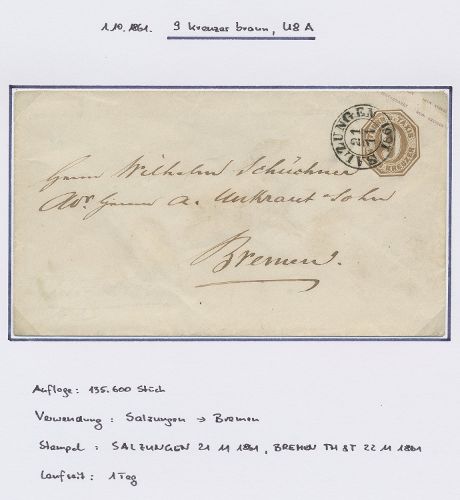 1.10.1861. 9 kreuzer braun, U8 A
SALZUNGEN
21
11
1861
TAXIS
KREUZER
Herrn Wilhelm Schüchner
Adr. Herrn A. Unkraut-Sohn
Bremen.
Auflage: 135.600 Stück
Verwendung: Salzungen → Bremen
Stempel: SALZUNGEN 21 11 1861, BREMEN TH & T 22 11 1861
Laufzeit: 1 Tag